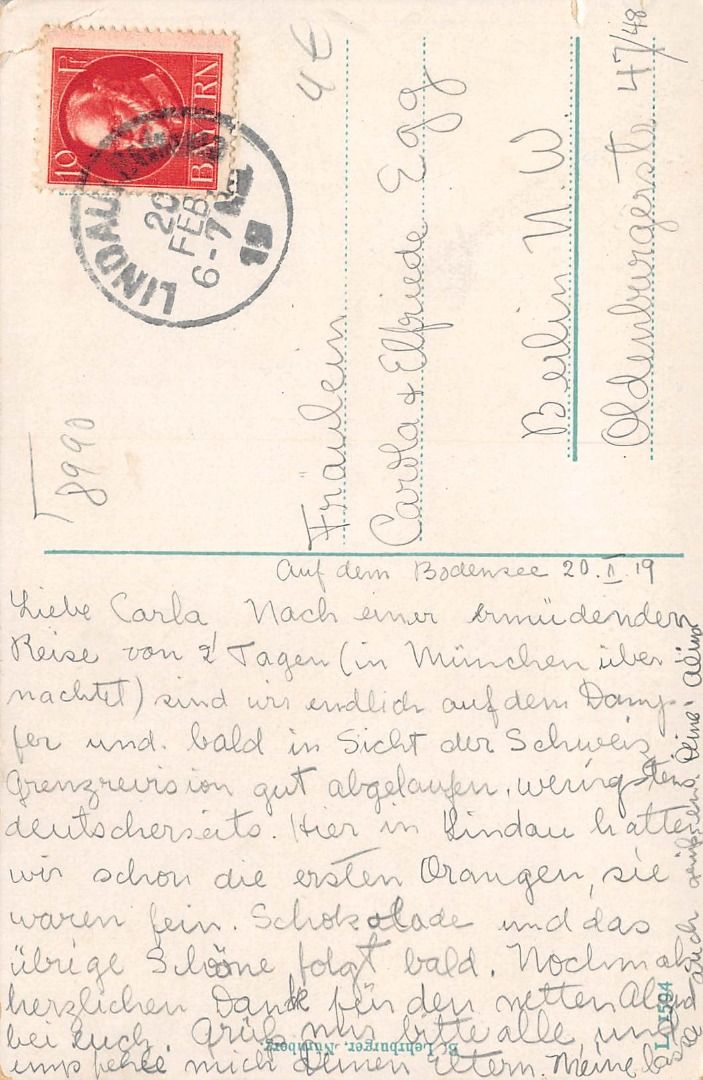 10 Pf BAYERN
LINDAU
20
FEB
6-7 Nm
19
4 €
8990
Fräulein
Carola & Elfriede Egg
Berlin N.W.
Oldenburgerstr 47/48
Auf dem Bodensee 20.II.19
Liebe Carla Nach einer ermüdenden
Reise von 2 Tagen (in München über
nachtet) sind wir endlich auf dem Damp-
fer und bald in Sicht der Schweiz
Grenzrevision gut abgelaufen, wenigstens
deutscherseits. Hier in Lindau hatten
wir schon die ersten Orangen, sie
waren fein. Schokolade und das
übrige Schöne folgt bald. Nochmals
herzlichen Dank für den netten Abend
bei euch. Grüß mir bitte alle, und
empfehle mich Deinen Eltern. Meine
auch Deine
B. Lehrburger, Nürnberg.
L.N 1594